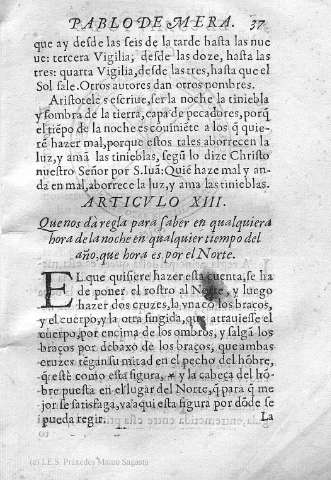 PABLO DE MERA. 37
que ay desde las seis de la tarde hasta las nue
ue: tercera Vigilia, desde las doze, hasta las
tres: quarta Vigilia, desde las tres, hasta que el
Sol sale. Otros autores dan otros nombres.
Aristoteles escriue, ser la noche la tiniebla
y sombra de la tierra, capa de pecadores, porq̃
el tiẽpo de la noche es cõuiniẽte a los q̃ quie-
rẽ hazer mal, porque estos tales aborrecen la
luz, y amã las tinieblas, segũ lo dize Christo
nuestro Señor por S. Iuã: Quiẽ haze mal y an-
da en mal, aborrece la luz, y ama las tinieblas.
ARTICVLO XIII.
Que nos da regla para saber en qualquiera
hora de la noche en qualquier tiempo del
año. que hora es por el Norte.
EL que quisiere hazer esta cuenta, se ha
de poner el rostro al Norte, y luego
hazer dos cruzes, la vna cõ los braços,
y el cuerpo, y la otra fingida, que atrauiesse el
cuerpo, por encima de los ombros, y salgã los
braços por debaxo de los braços, que ambas
cruzes tẽgan su mitad en el pecho del hõbre,
q̃ estè como esta figura, * y la cabeça del hõ-
bre puesta en el lugar del Norte, q̃ para q̃ me
jor se satisfaga, va aqui esta figura por dõde se
pueda regir. La
(c) I.E.S. Práxedes Mateo Sagasta